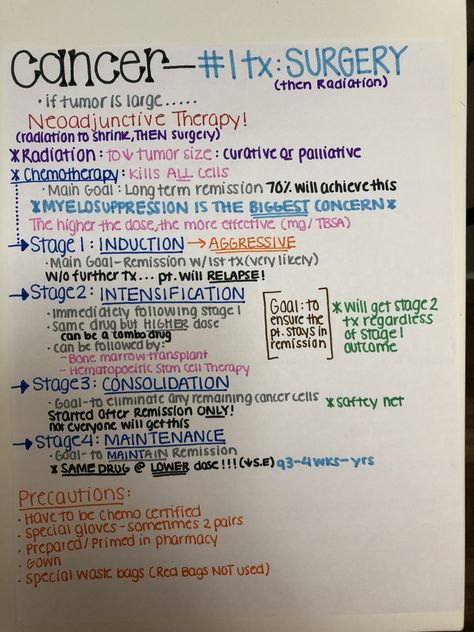 Cancer— #1 tx: SURGERY
(then Radiation)
• if tumor is large.....
Neoadjunctive Therapy!
(radiation to shrink, THEN surgery)
* Radiation: to ↓ tumor size: curative or palliative
* Chemotherapy: Kills ALL cells
• Main Goal: Long term remission 70% will achieve this
*MYELOSUPPRESSION IS THE BIGGEST CONCERN*
The higher the dose, the more effective (mg/TBSA)
→ Stage 1: INDUCTION → AGGRESSIVE
• Main Goal- Remission w/1st tx (very likely)
w/o further tx... pt. will RELAPSE!
→ Stage 2: INTENSIFICATION
• Immediately following stage 1
• same drug but HIGHER dose
can be a combo drug
• can be followed by:
- Bone marrow transplant
- Hematopoietic Stem cell Therapy
Goal: to
ensure the
pt. stays in
remission
* will get stage 2
tx regardless
of stage 1
outcome
→ Stage 3: CONSOLIDATION
• Goal-to eliminate any remaining cancer cells * saftey net
Started after Remission ONLY!
not everyone will get this
→ Stage 4: MAINTENANCE
• Goal- to MAINTAIN Remission
* SAME DRUG @ LOWER dose!!! (↓S.E) q3-4wks-yrs
Precautions:
• Have to be chemo certified
• special gloves - sometimes 2 pairs
• Prepared/Primed in pharmacy
• Gown
• Special waste bags (Red Bags NOT used)